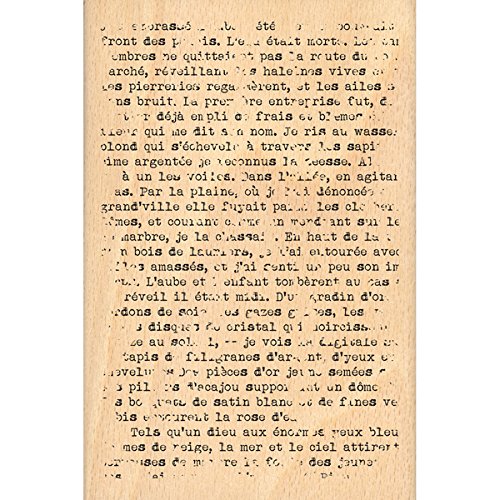 été
front des . L'eau était morte.
ombres ne quittaient pas la route du
arché, réveillant les haleines vives
es pierreries regardèrent, et les ailes
ns bruit. La première entreprise fut,
déjà empli de frais et blêmes
qui me dit son nom. Je ris au wasser
blond qui s'échevela à travers les sapi
ime argentée je reconnus la déesse.
à un les voiles. Dans l'allée, en agitan
as. Par la plaine, où je l'ai dénoncée
grand'ville elle fuyait parmi les clocher
ômes, et courant comme un mendiant sur le
marbre, je la chassai. En haut de la
n bois de lauriers, je l'ai entourée avec
amassés, et j'ai senti un peu son im
L'aube et l'enfant tombèrent au bas
réveil il était midi. D'un gradin d'or,
rdons de soie, les gazes grises, les
disques de cristal qui noircisse
ze au soleil, -- je vois la digitale
tapis de filigranes d'argent, d'yeux e
hevelures Des pièces d'or jaune semées
piliers d'acajou supportant un dôme
bouquets de satin blanc et de fines ve
bis entourent la rose d'eau
Tels qu'un dieu aux énormes yeux bleu
mes de neige, la mer et le ciel attirent
de marbre la foule des jeunes